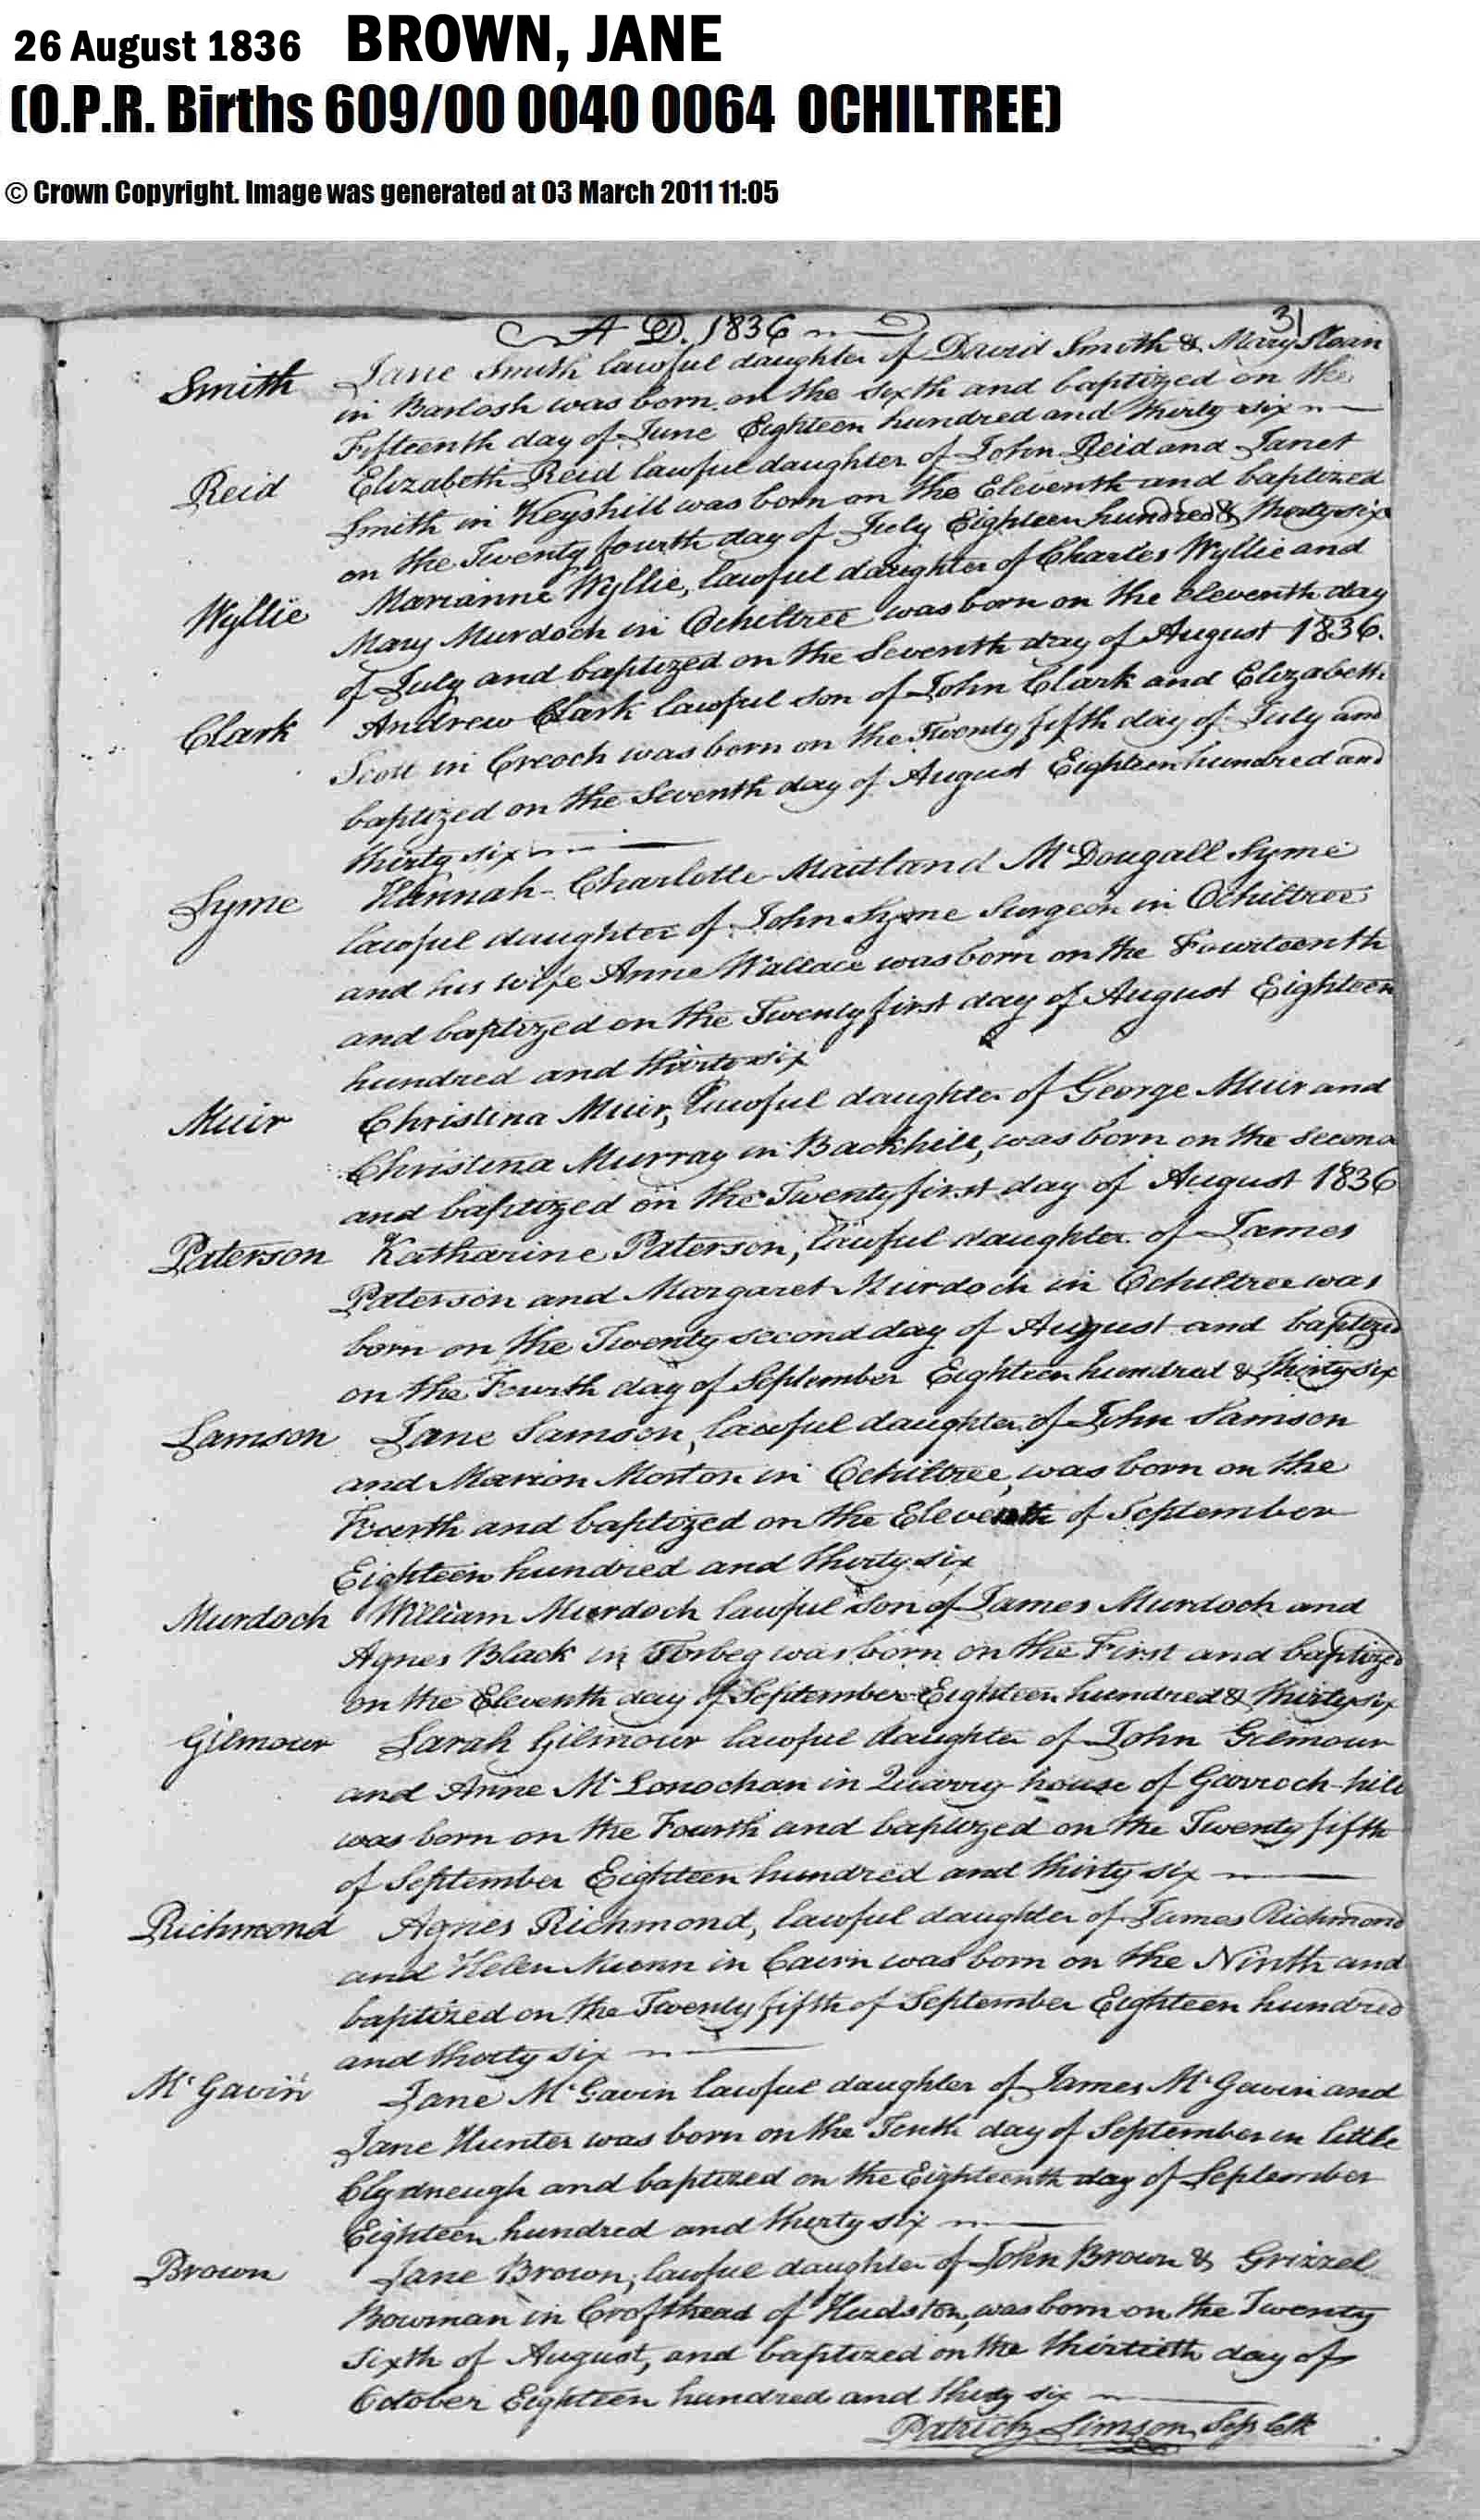 26 August 1836 BROWN, JANE
(O.P.R. Births 609/00 0040 0064 OCHILTREE)
© Crown Copyright. Image was generated at 03 March 2011 11:05
A D. 1836
31
Smith Jane Smith lawful daughter of David Smith & Mary Sloan
in Barlosh was born on the sixth and baptized on the
Fifteenth day of June Eighteen hundred and thirty six
Reid Elizabeth Reid lawful daughter of John Reid and Janet
Smith in Keyshill was born on the Eleventh and baptized
on the Twenty fourth day of July Eighteen hundred & thirty six
Wyllie Marianne Wyllie, lawful daughter of Charles Wyllie and
Mary Murdoch in Ochiltree was born on the eleventh day
of July and baptized on the Seventh day of August 1836.
Clark Andrew Clark lawful son of John Clark and Elizabeth
Scott in Creoch was born on the Twenty fifth day of July and
baptized on the Seventh day of August Eighteen hundred and
thirty six
Syme Hannah Charlotte Maitland McDougall Syme
lawful daughter of John Syme Surgeon in Ochiltree
and his wife Anne Wallace was born on the Fourteenth
and baptized on the Twenty first day of August Eighteen
hundred and thirty six
Muir Christina Muir, lawful daughter of George Muir and
Christina Murray in Backhill, was born on the second
and baptized on the Twenty first day of August 1836
Paterson Katharine Paterson, lawful daughter of James
Paterson and Margaret Murdoch in Ochiltree was
born on the Twenty second day of August and baptized
on the Fourth day of September Eighteen hundred & thirty six
Samson Jane Samson, lawful daughter of John Samson
and Marion Morton in Ochiltree, was born on the
Fourth and baptized on the Eleventh of September
Eighteen hundred and thirty six
Murdoch William Murdoch lawful son of James Murdoch and
Agnes Black in Torbeg was born on the First and baptized
on the Eleventh day of September Eighteen hundred & thirty six
Gilmour Sarah Gilmour lawful daughter of John Gilmour
and Anne McLonochan in Quarry-house of Garroch-hill
was born on the Fourth and baptized on the Twenty fifth
of September Eighteen hundred and thirty six
Richmond Agnes Richmond, lawful daughter of James Richmond
and Helen Munn in Cairn was born on the Ninth and
baptized on the Twenty fifth of September Eighteen hundred
and thirty six
McGavin Jane McGavin lawful daughter of James McGavin and
Jane Hunter was born on the Tenth day of September in little
and baptized on the Eighteenth day of September
Eighteen hundred and thirty six
Brown Jane Brown, lawful daughter of John Brown & Grizzel
Bowman in Crofthead of Hudston, was born on the Twenty
sixth of August, and baptized on the thirtieth day of
October Eighteen hundred and thirty six
Patrick Simson, Sess Clk